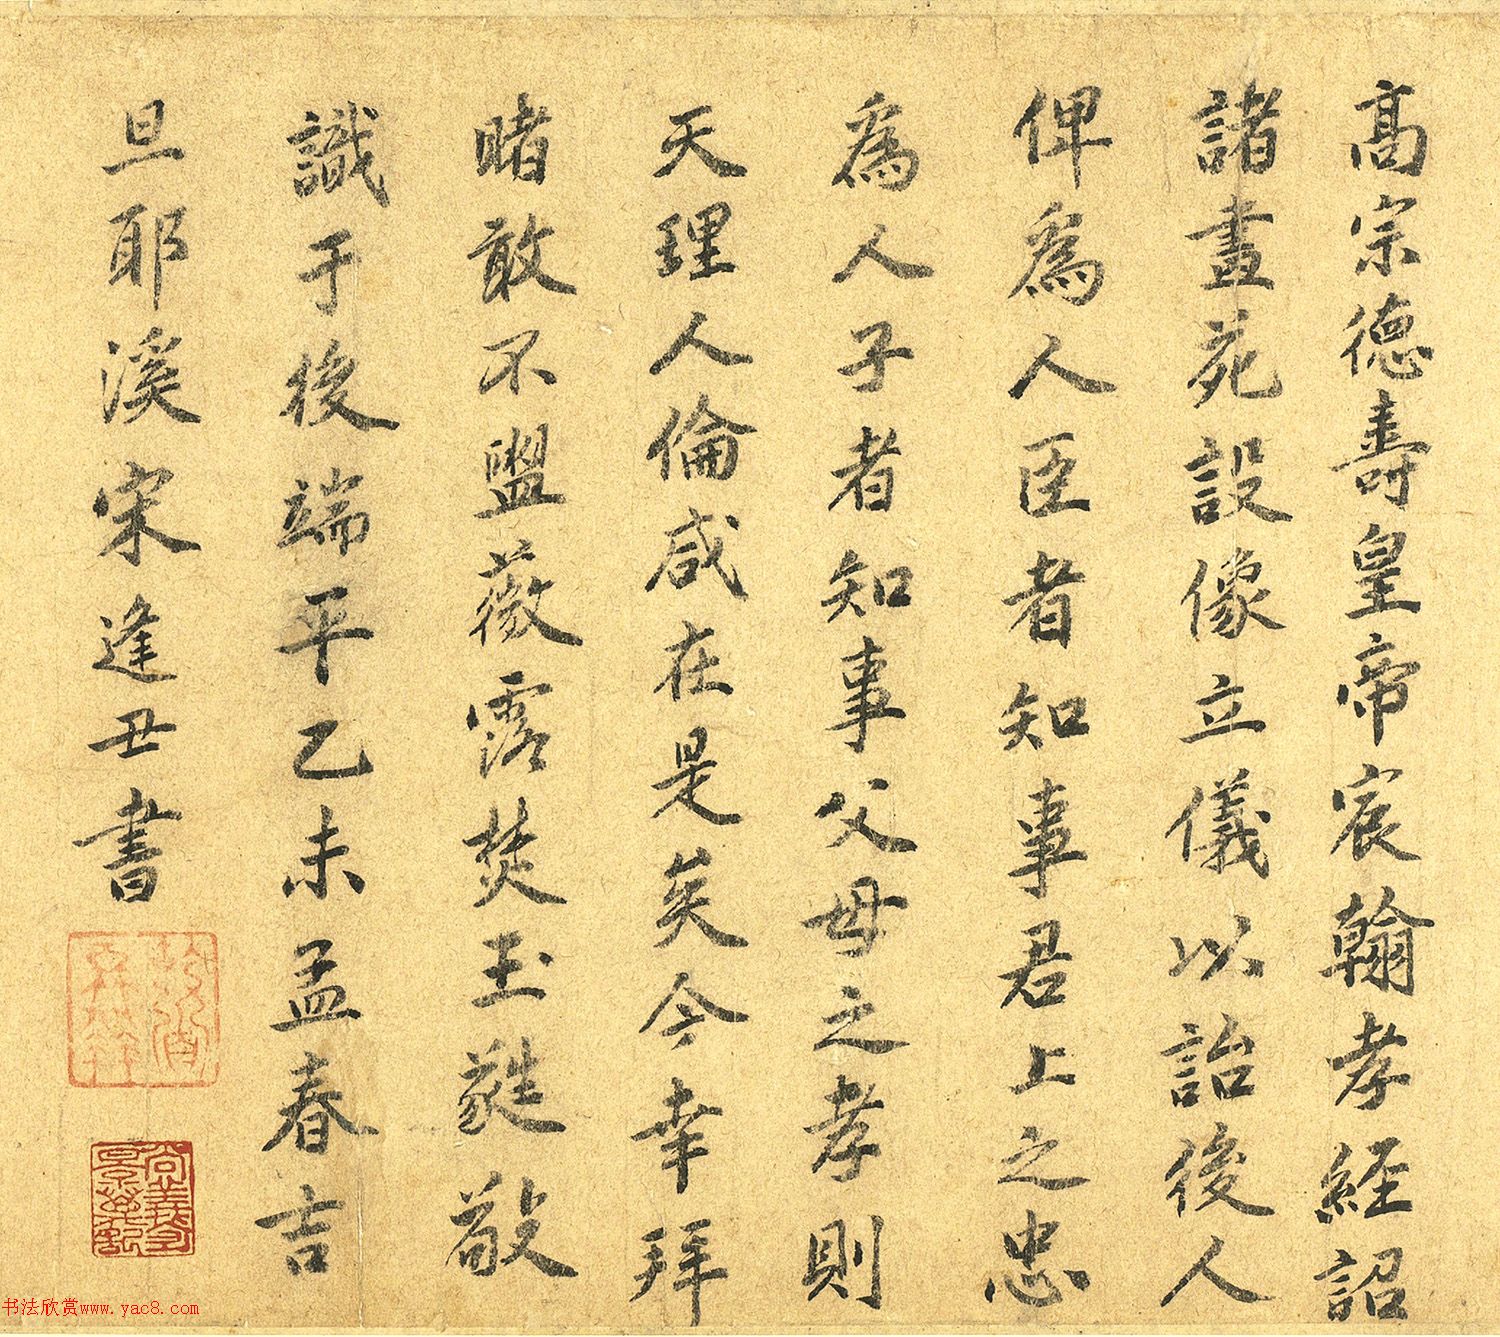 高宗德壽皇帝宸翰孝經詔
諸畫苑設像立儀以詒後人
俾為人臣者知事君上之忠
為人子者知事父母之孝則
天理人倫咸在是矣今幸拜
睹敢不盥薇露焚玉蕤敬
識于後端平乙未孟春吉
旦耶溪宋逢丑書
书法欣赏www.yac8.com